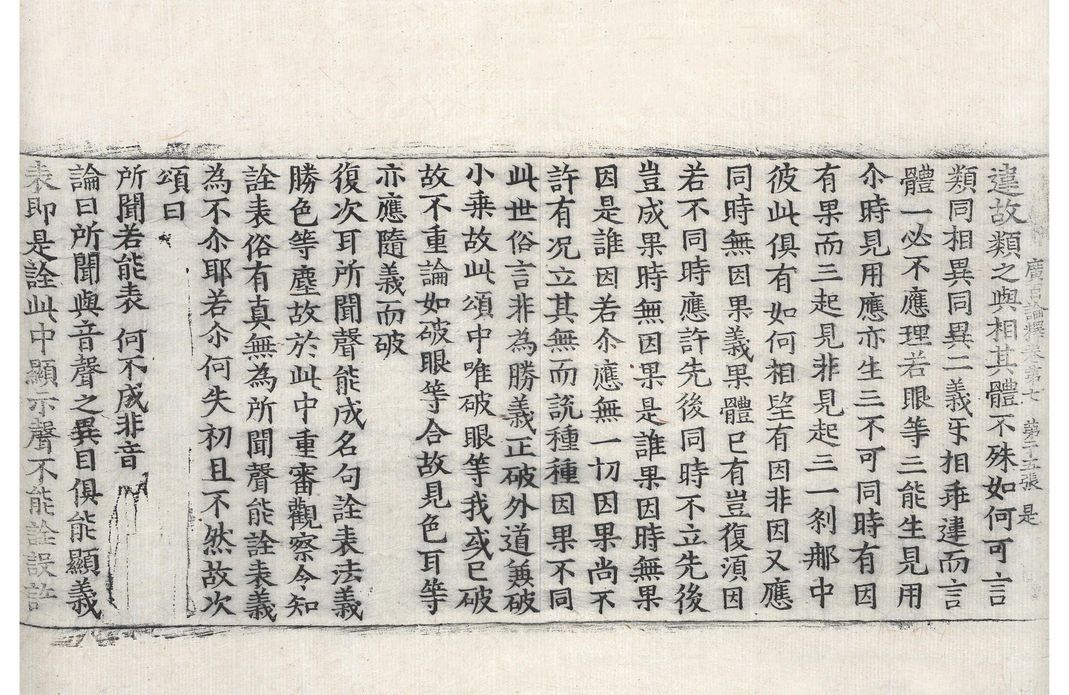 廣百論釋卷第七 第二十五張 是
違故類之與相其體不殊如何可言
類同相異同異二義牙相乖違而言
體一必不應理若眼等三能生見用
尒時見用應亦生三不可同時有因
有果而三起見非見起三一刹那中
彼此俱有如何相望有因非因又應
同時無因果義果體已有豈復湏因
若不同時應許先後同時不立先後
豈成果時無因果是誰果因時無果
因是誰因若尒應無一切因果尚不
許有况立其無而說種種因果不同
此世俗言非為勝義正破外道兼破
小乗故此頌中唯破眼等我或已破
故不重論如破眼等合故見色耳等
亦應隨義而破
復次耳所聞聲能成名句詮表法義
勝色等塵故於此中重審觀察今知
詮表俗有真無為所聞聲能詮表義
為不尒耶若尒何失初且不然故次
頌曰
所聞若能表 何不成非音
論曰所聞與音聲之異目俱能顯義
表即是詮此中顯示聲不能詮設許